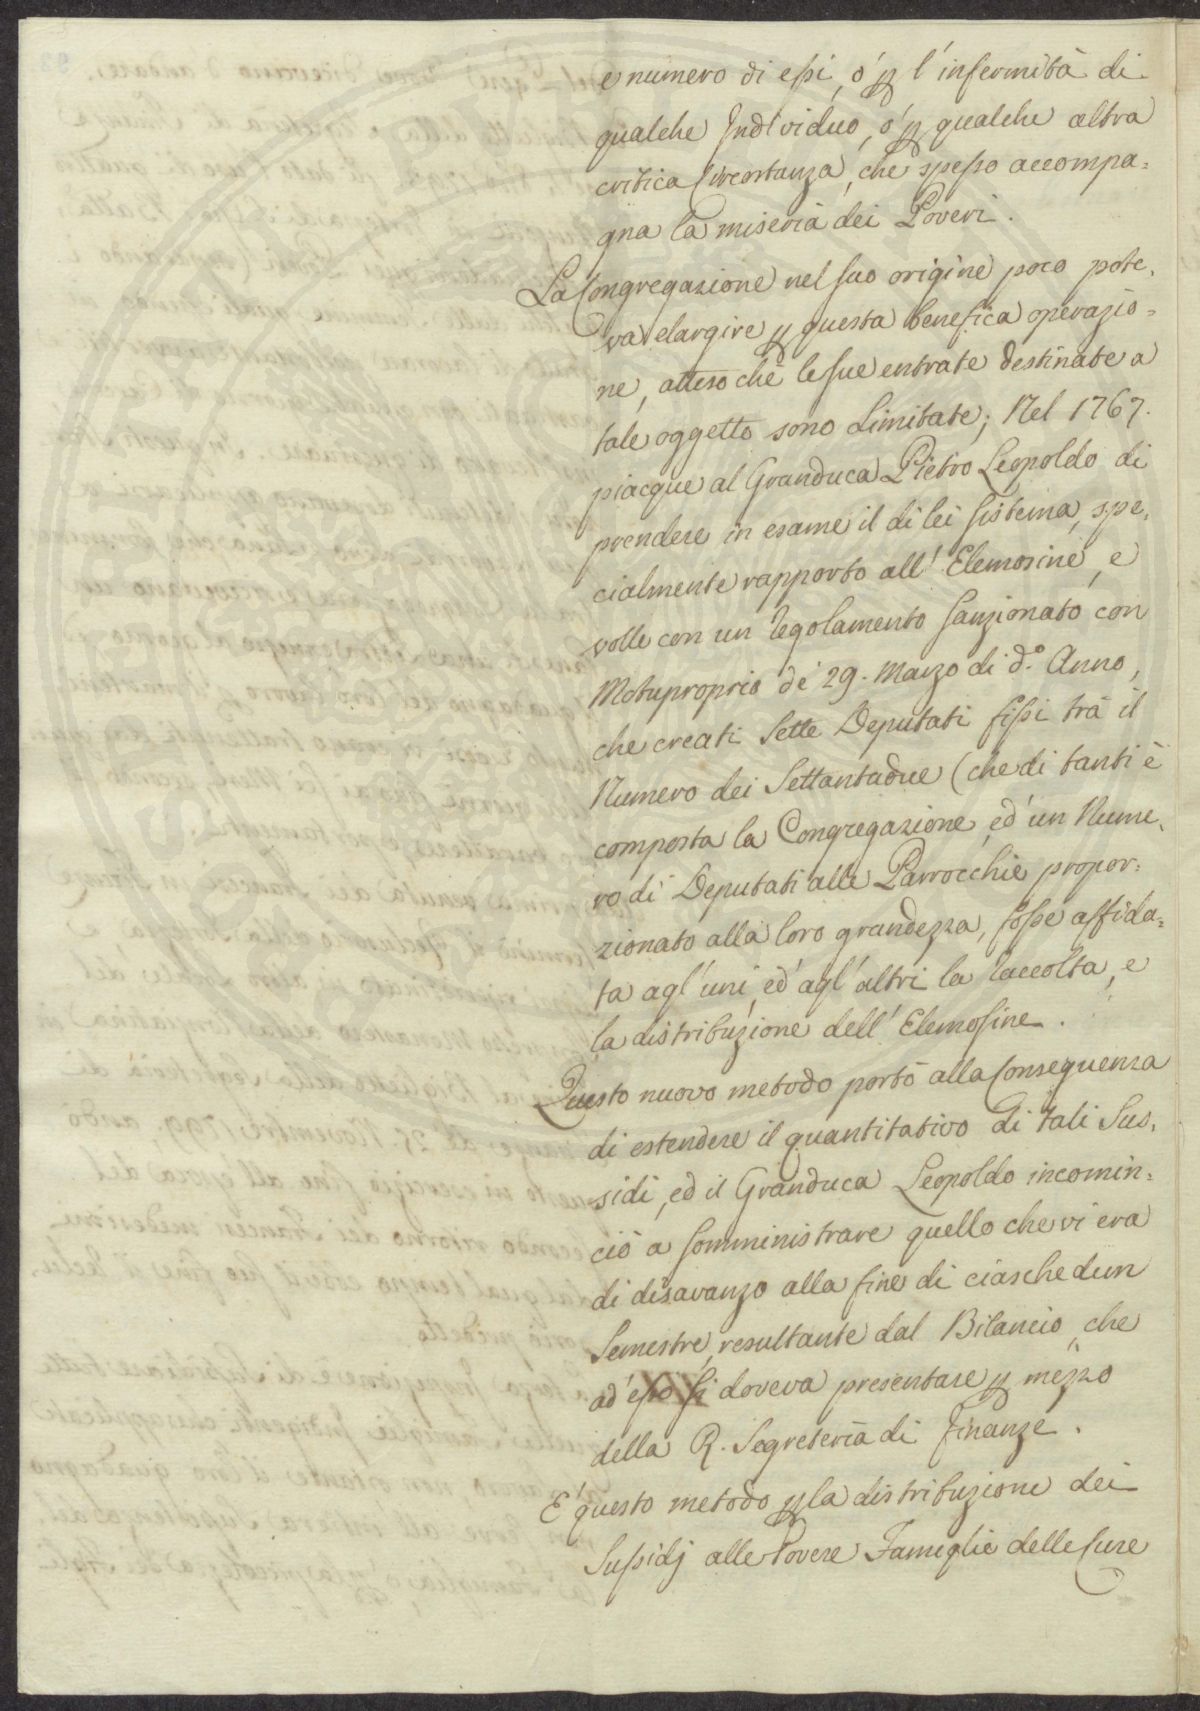 e numero di essi, ó p l'infermità di
qualche Individuo, ó p qualche altra
critica Circostanza, che spesso accompa=
gna la miseria dei Poveri.
La Congregazione nel suo origine poco pote=
va elargire p questa benefica operazio=
ne, atteso che le sue entrate destinate a
tale oggetto sono limitate; Nel 1767.
piacque al Granduca Pietro Leopoldo di
prendere in esame il di lei sistema, spe=
cialmente rapporto all'Elemosine, e
volle con un regolamento sanzionato con
Motuproprio de' 29. Marzo di d.º Anno,
che creati Sette Deputati fissi trà il
Numero dei Settantadue (che di tanti è
composta la Congregazione, ed'un Nume=
ro di Deputati alle Parrocchie propor=
zionato alla loro grandezza, fosse affida=
ta agl'uni, ed'agl'altri la raccolta, e
la distribuzione dell'Elemosine.
Questo nuovo metodo portò alla Conseguenza
di estendere il quantitativo di tali Sus=
sidi, ed il Granduca Leopoldo incomin=
ciò a somministrare quello che vi era
di disavanzo alla fine di ciaschedun
Semestre, resultante dal Bilancio, che
ad'esso si doveva presentare p mezzo
della R. Segreteria di Finanze.
E' questo metodo p la distribuzione dei
Sussidj alle Povere Famiglie delle Cure